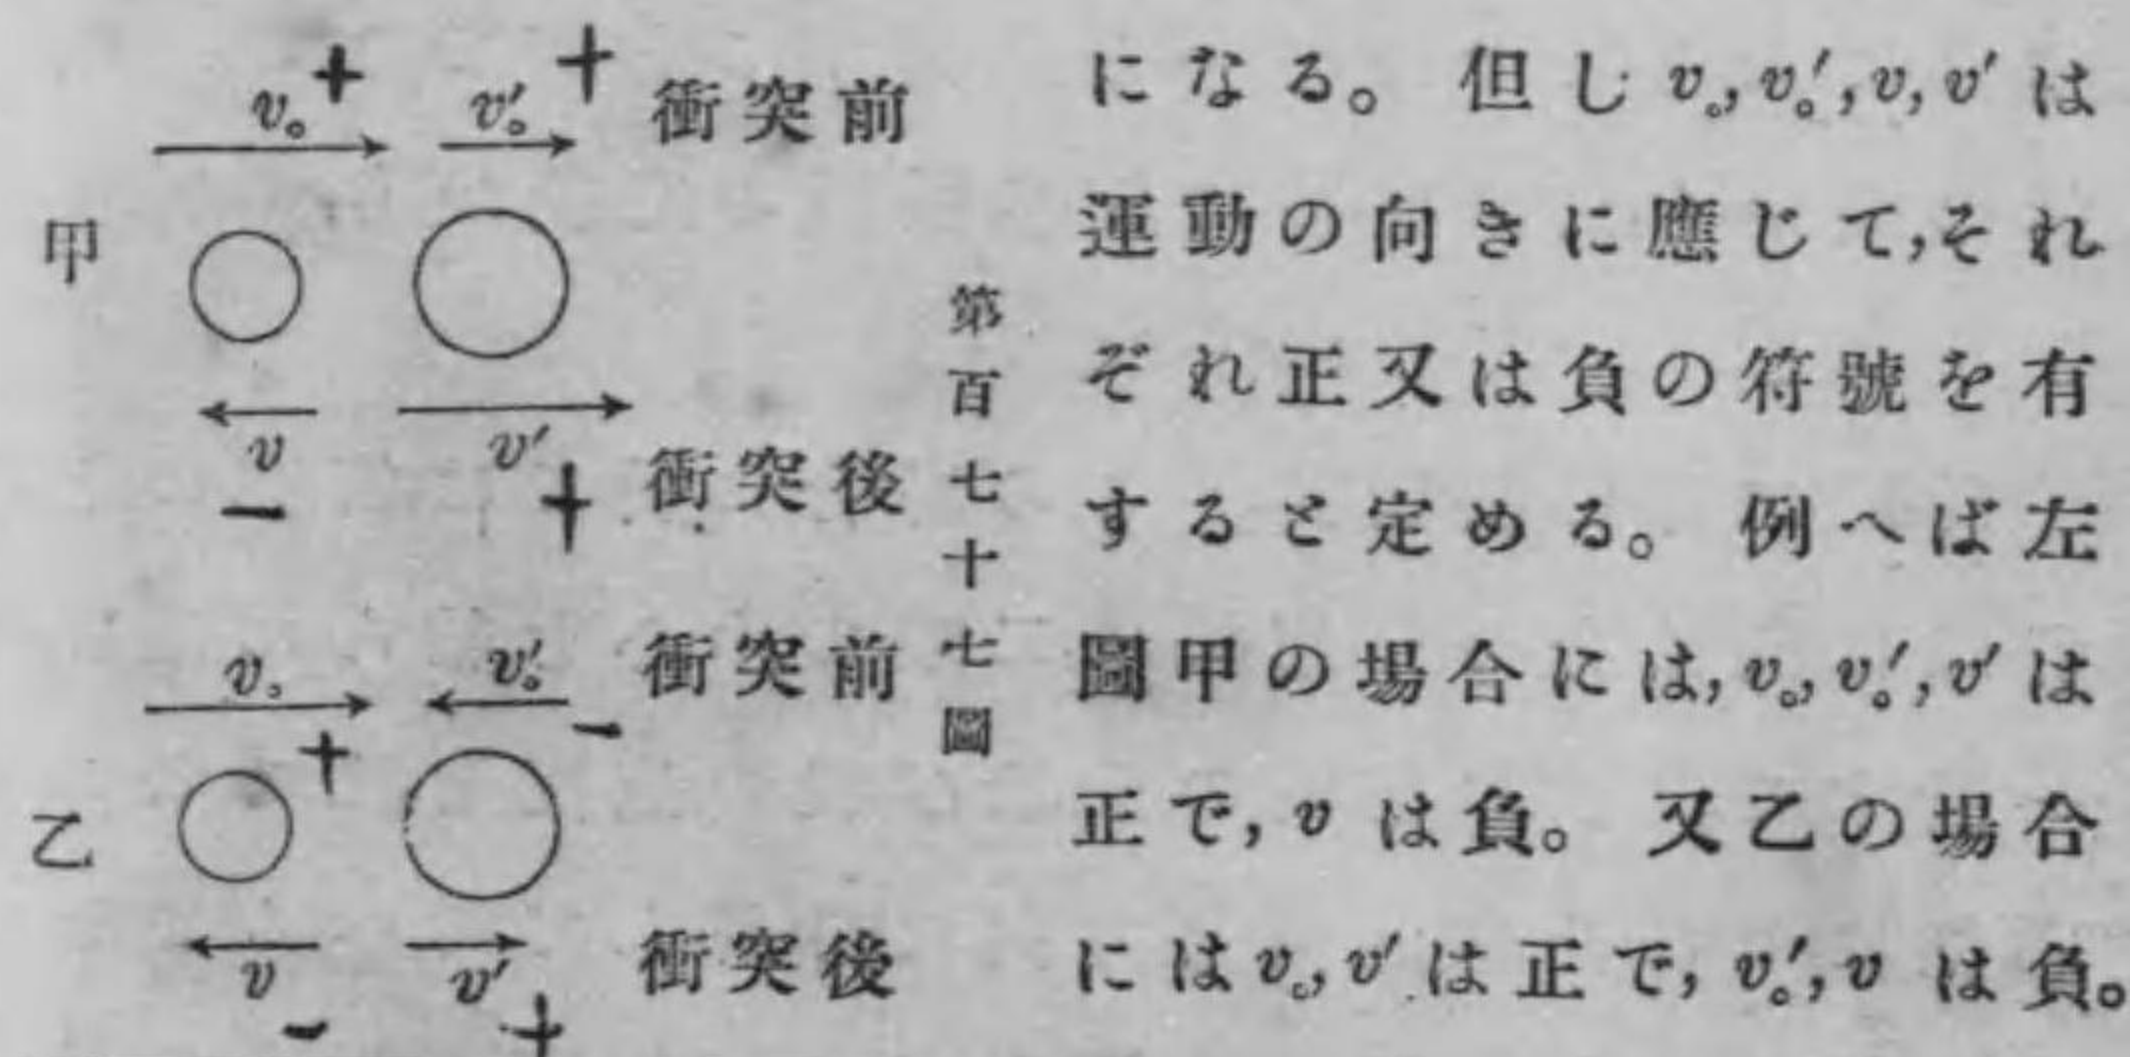 v₀ + v₀′ + 衝突前
甲
v v′ 衝突後
− +
v₀ v₀′ 衝突前
+ −
乙
v v′ 衝突後
− +
第百七十七圖
になる。但し v₀, v₀′, v, v′ は
運動の向きに應じて,それ
ぞれ正又は負の符號を有
すると定める。例へば左
圖甲の場合には, v₀, v₀′, v′ は
正で, v は負。又乙の場合
には v₀, v′ は正で, v₀′, v は負。